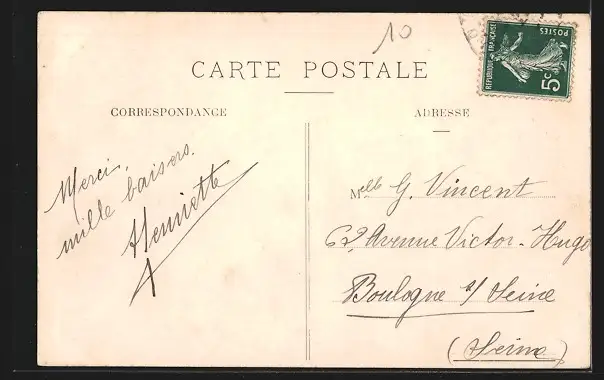 10
CARTE POSTALE
CORRESPONDANCE
Merci,
mille baisers.
Henriette
ADRESSE
Melle G. Vincent
62, Avenue Victor-Hugo
Boulogne s/ Seine
(Seine)
REPUBLIQUE FRANÇAISE
POSTES
5c